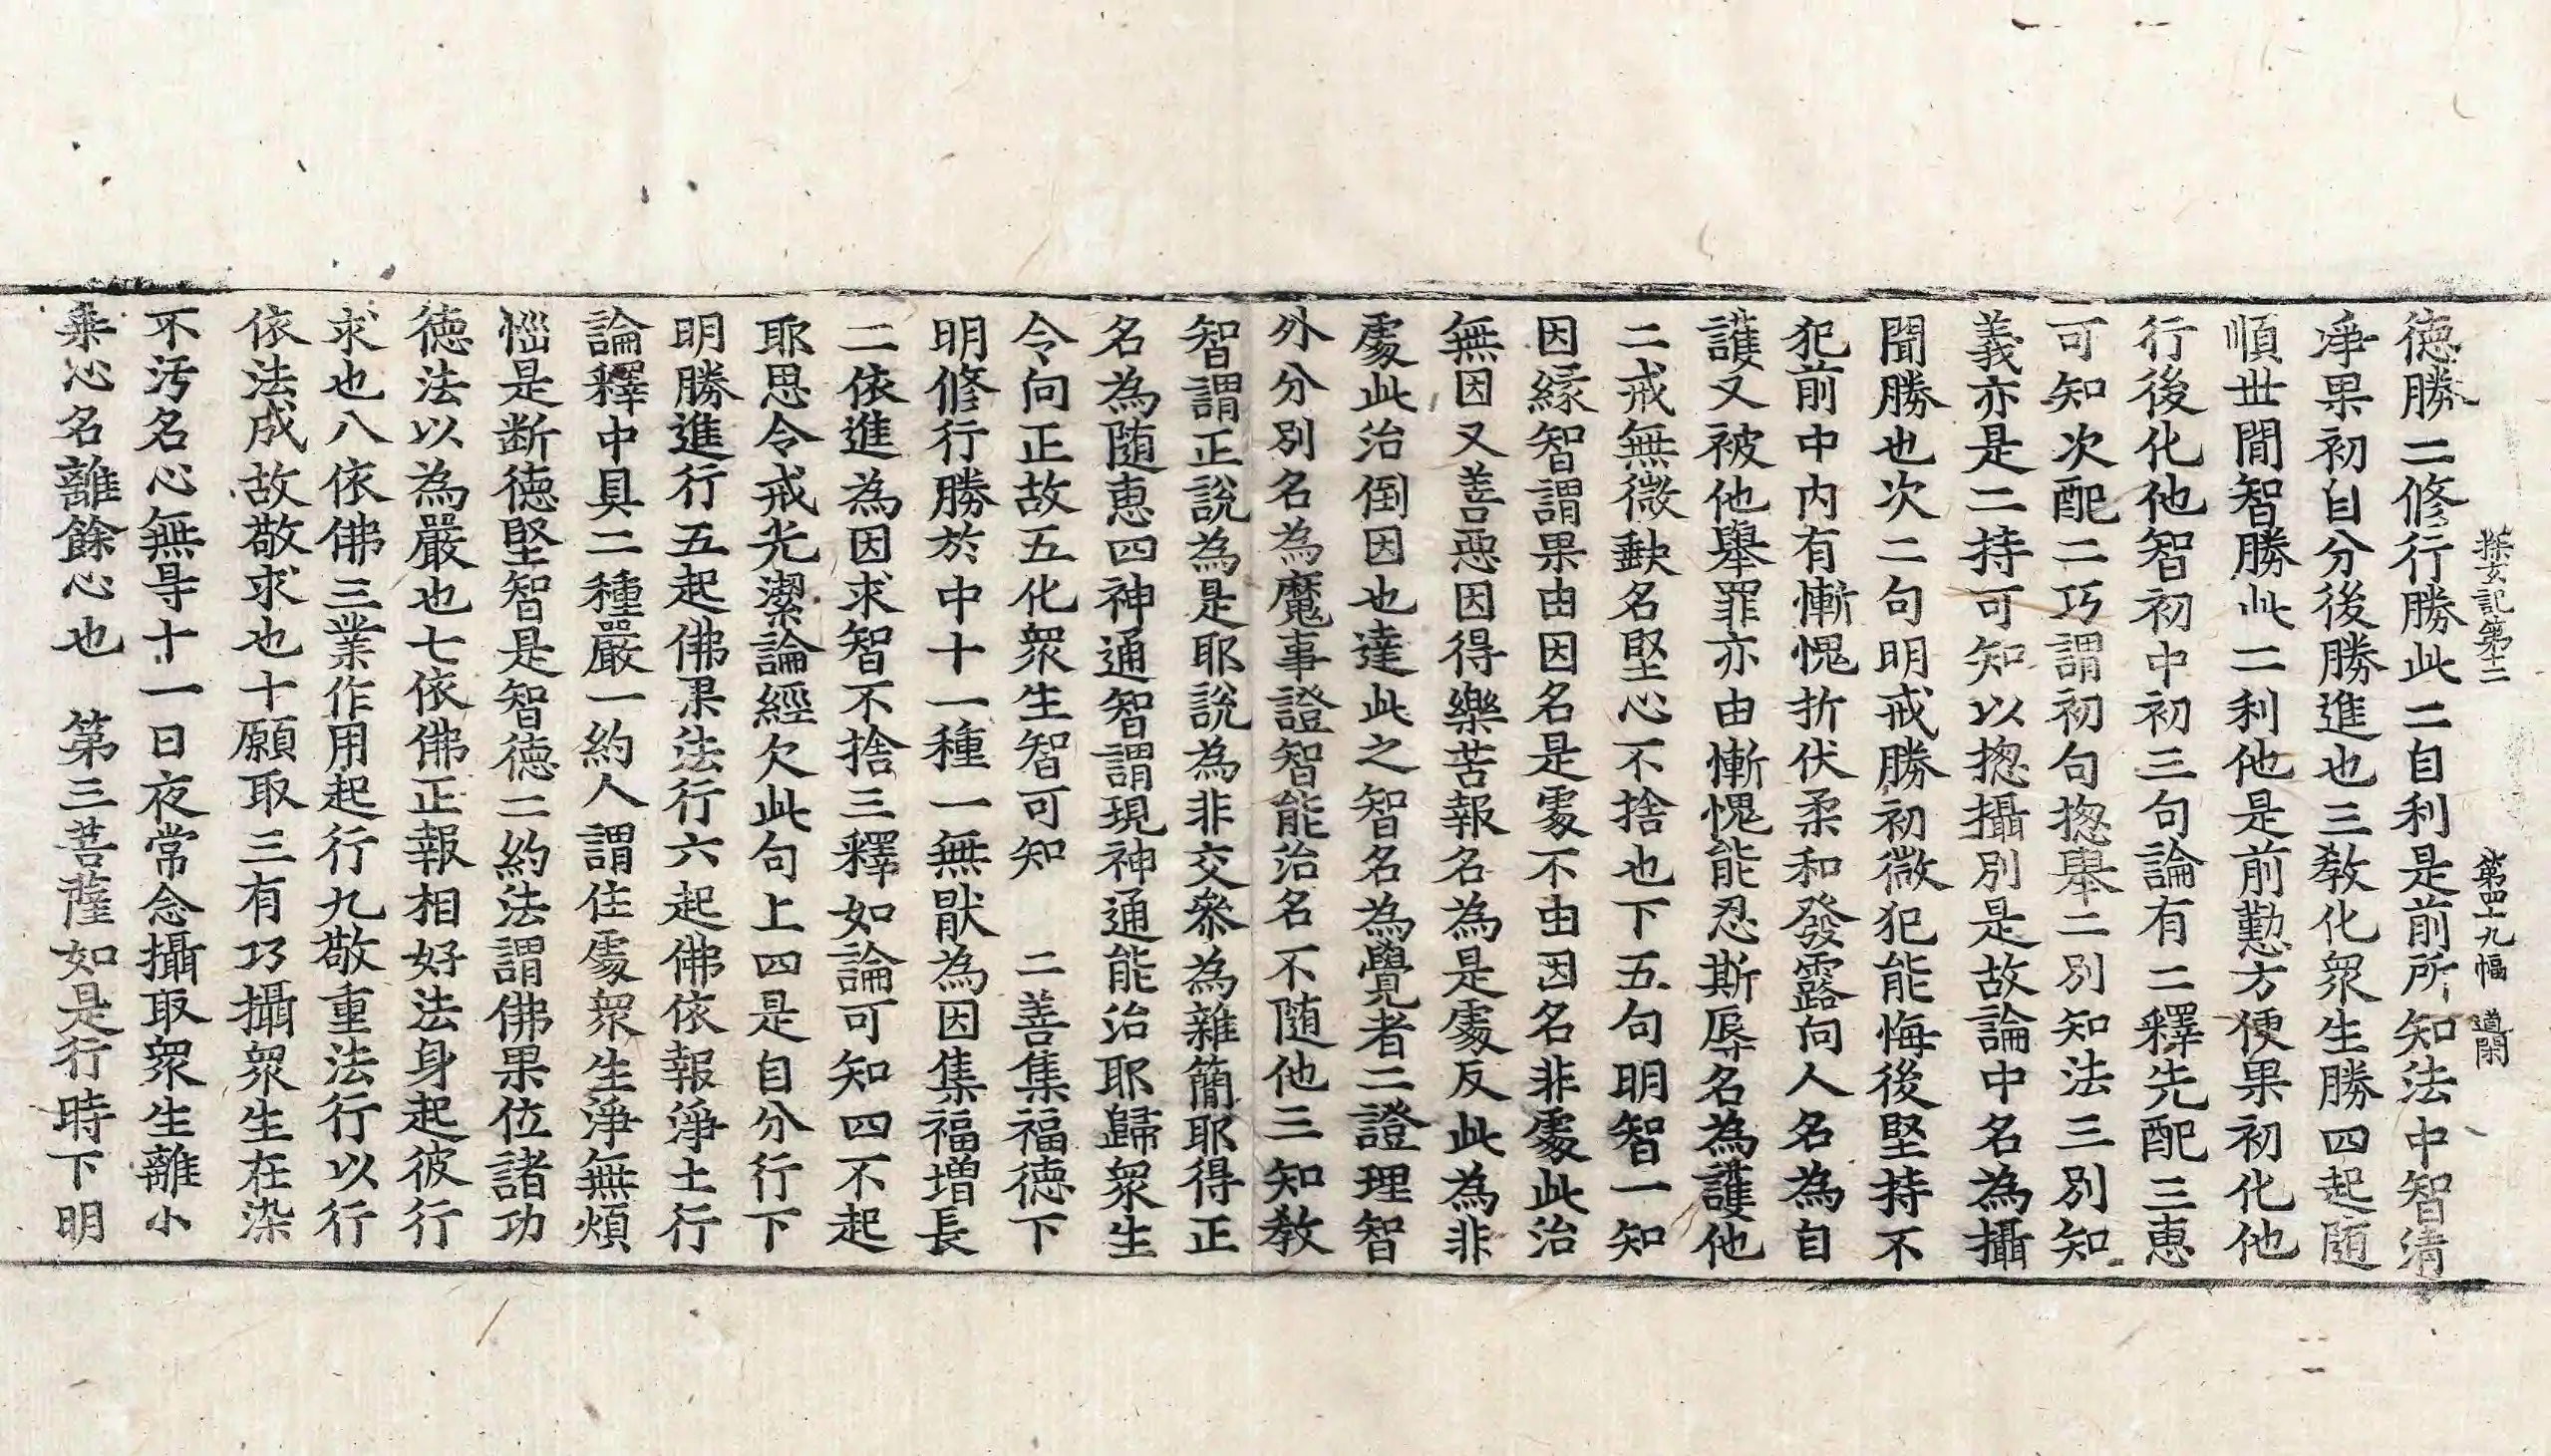 探玄記第十二　第四十九幅　道閑
德勝二修行勝此二自利是前所知法中智清
淨果初自分後勝進也三教化衆生勝四起随
順世間智勝此二利他是前懃方便果初化他
行後化他智初中初三句論有二釋先配三恵
可知次配二巧謂初句揔舉二別知法三別知
義亦是二持可知以揔攝別是故論中名為攝
聞勝也次二句明戒勝初微犯能悔後堅持不
犯前中内有慚愧折伏柔和發露向人名為自
護又被他舉罪亦由慚愧能忍斯辱名為護他
二戒無微𡙇名堅心不捨也下五句明智一知
因緣智謂果由因名是處不由因名非處此治
無因又善惡因得樂苦報名為是處反此為非
處此治倒因也達此之智名為覺者二證理智
外分別名為魔事證智能治名不随他三知教
智謂正說為是耶說為非交叅為雜簡耶得正
名為随恵四神通智謂現神通能治耶歸衆生
令向正故五化衆生智可知　二善集福德下
明修行勝於中十一種一無猒為因集福增長
二依進為因求智不捨三釋如論可知四不起
耶思令戒光潔論經欠此句上四是自分行下
明勝進行五起佛果法行六起佛依報淨土行
論釋中具二種嚴一約人謂住處衆生淨無煩
惱是断德堅智是智德二約法謂佛果位諸功
德法以為嚴也七依佛正報相好法身起彼行
求也八依佛三業作用起行九敬重法行以行
依法成故敬求也十願取三有巧攝衆生在染
不汚名心無㝵十一日夜常念攝取衆生離小
乘心名離餘心也　第三菩薩如是行時下明